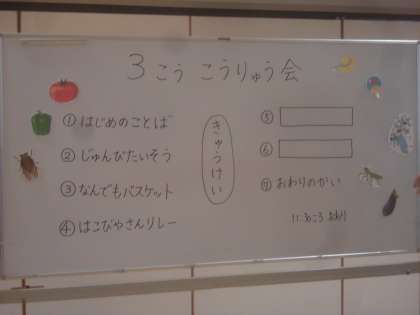 3こう こうりゅう会
①はじめのことば
②じゅんびたいそう
③なんでもバスケット
④はこびやさんリレー
きゅうけい
⑤
⑥
⑦おわりのかい